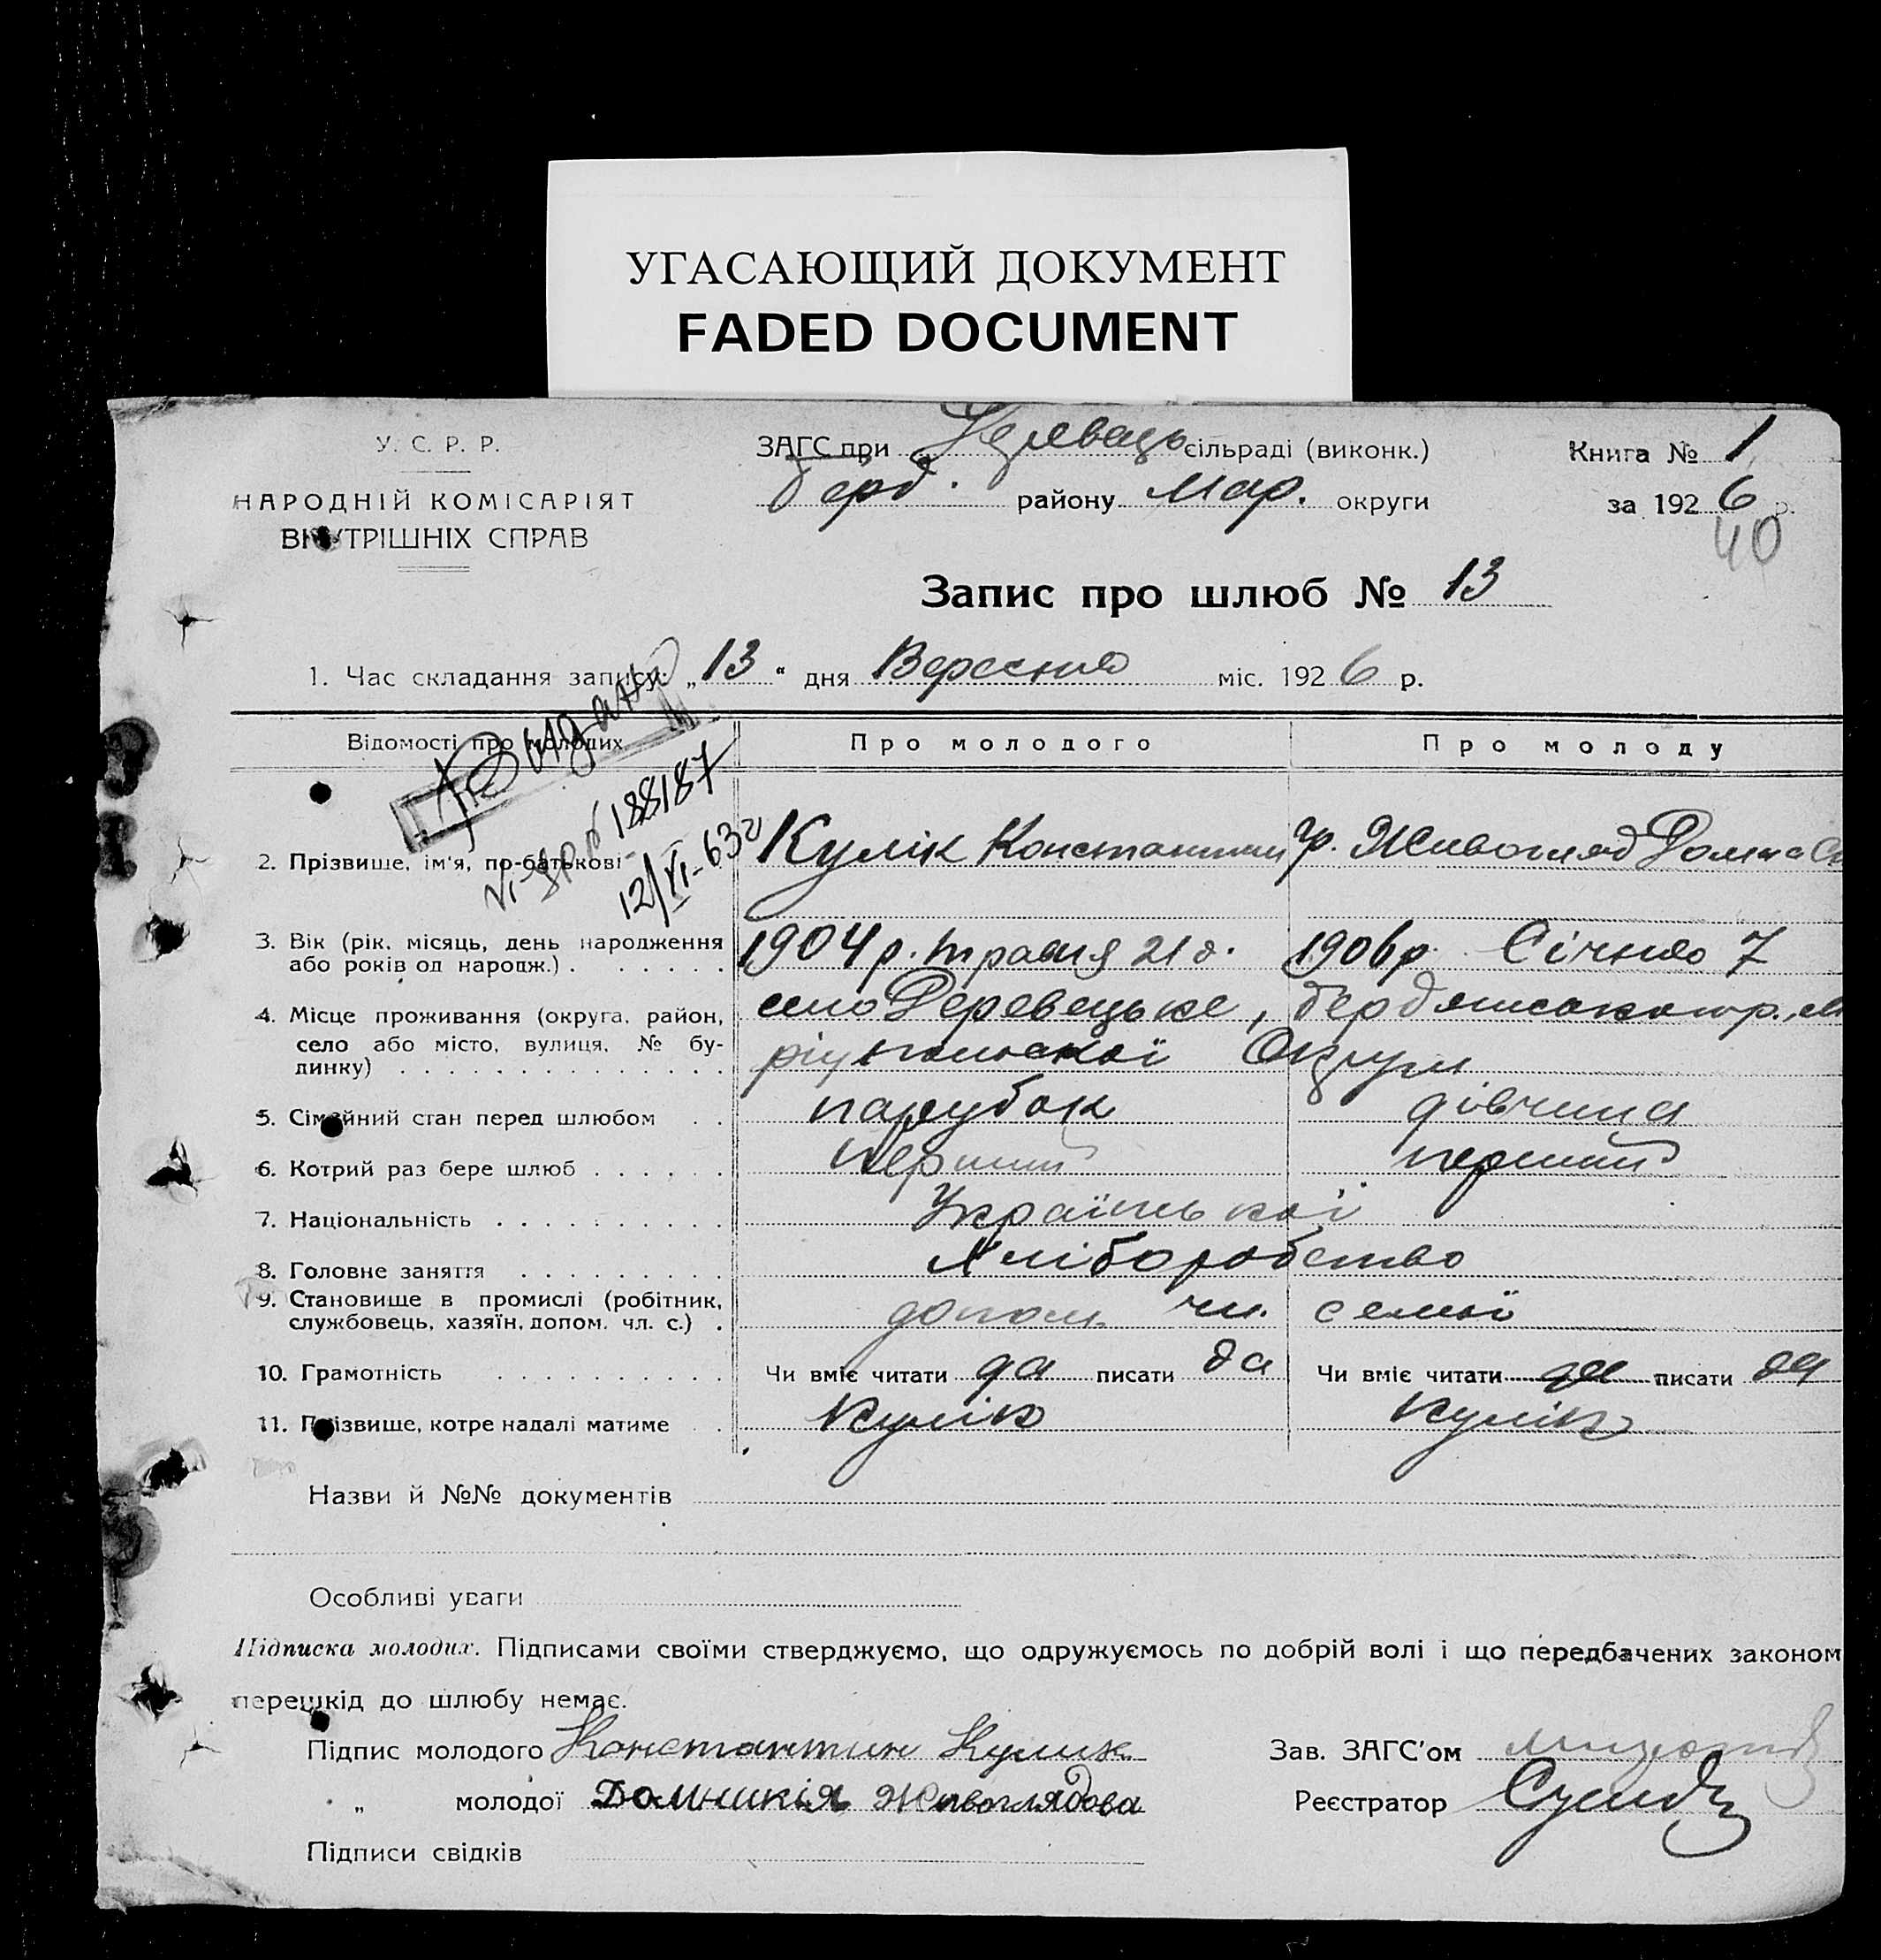 УГАСАЮЩИЙ ДОКУМЕНТ
FADED DOCUMENT
У. С. Р. Р.
НАРОДНІЙ КОМІСАРІЯТ
ВНУТРІШНІХ СПРАВ
ЗАГС при сільраді (виконк.)
Берд. району Мар. округи
Книга № 1
за 1926 р.
40
Запис про шлюб № 13
1. Час складання запису: „13“ дня Вересня міс. 1926 р.
Видано
188187
12/XI-63г
Відомості про молодих
Про молодого
Про молоду
2. Прізвище, ім'я, по-батькові Кулік Константин гр. Живогляд Домна
3. Вік (рік, місяць, день народження
або років од народж.) . . . . . . 1904 р. травня 21 д. 1906 р. Січня 7
4. Місце проживання (округа, район,
село або місто, вулиця, № бу-
динку) . . . . . . . . . . . . . .
село Деревецьке, Бердянського р., Ма
ріупольської Округи
5. Сімейний стан перед шлюбом . . парубок дівчина
6. Котрий раз бере шлюб . . . . . . перший перший
7. Національність . . . . . . . . . . Української
8. Головне заняття . . . . . . . . . Хліборобство
9. Становище в промислі (робітник,
службовець, хазяїн, допом. чл. с.) . допом. чл. семьї
10. Грамотність . . . . . . . . . . Чи вміє читати да писати да Чи вміє читати да писати да
11. Прізвище, котре надалі матиме . . Кулік Кулік
Назви й №№ документів
Особливі уваги
Підписка молодих. Підписами своїми стверджуємо, що одружуємось по добрій волі і що передбачених законом
перешкід до шлюбу немає.
Підпис молодого Константин Кулик
Зав. ЗАГС'ом
„ молодої Домникія Живоглядова
Реєстратор
Підписи свідків